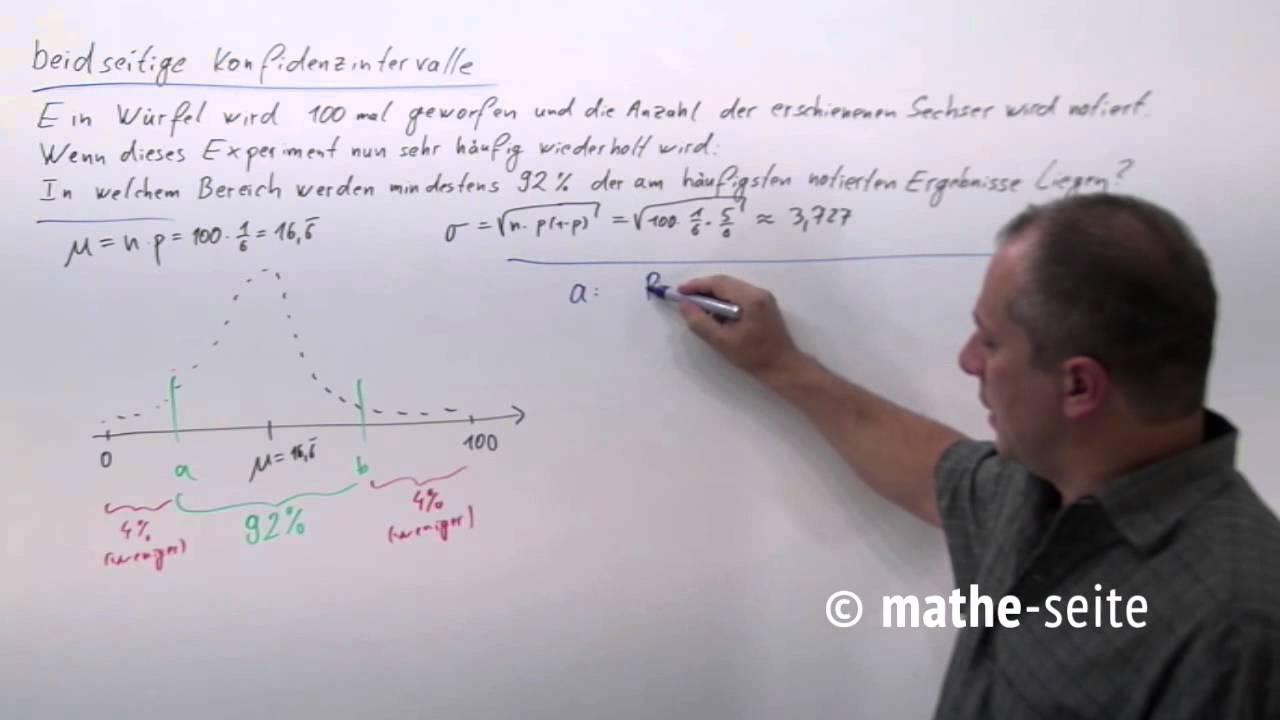 beidseitige Konfidenzintervalle
Ein Würfel wird 100 mal geworfen und die Anzahl der erschienenen Sechser wird notiert.
Wenn dieses Experiment nun sehr häufig wiederholt wird:
In welchem Bereich werden mindestens 92% der am häufigsten notierten Ergebnisse liegen?
μ = n·p = 100·1/6 = 16,6̅
σ = √n·p(1-p) = √100·1/6·5/6 ≈ 3,727
a:
0
μ = 16,6̅
100
a
b
4%
(weniger)
92%
4%
(weniger)
© mathe-seite